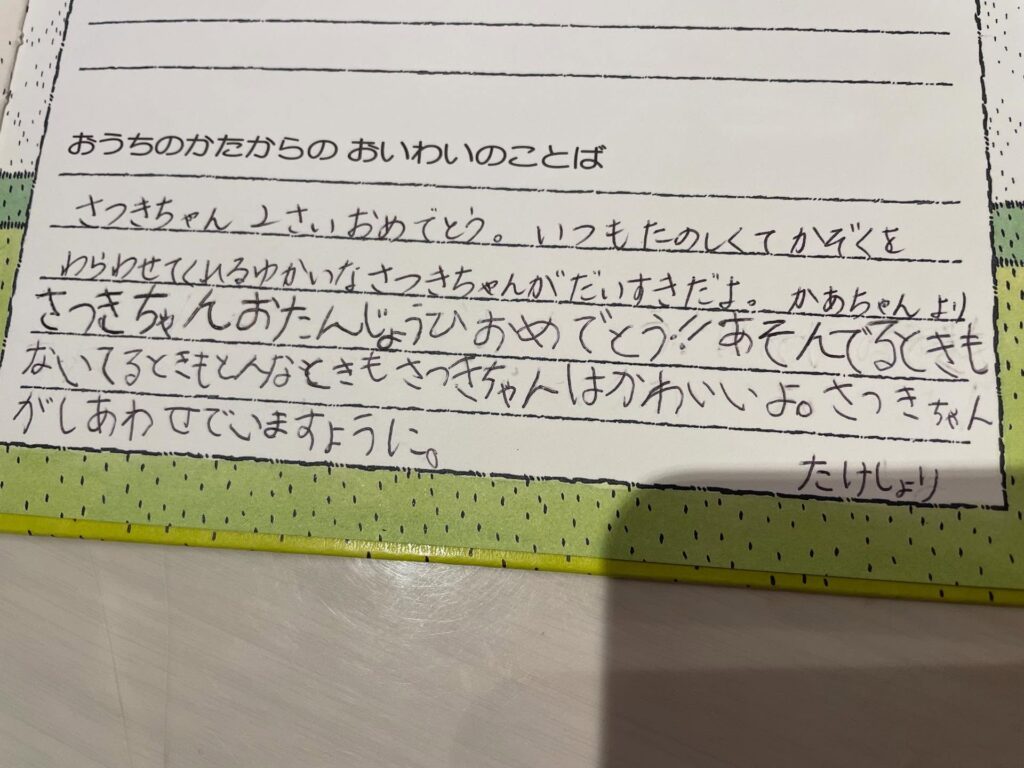 おうちのかたからの おいわいのことば
さつきちゃん 2さいおめでとう。いつもたのしくてかぞくを
わらわせてくれるゆかいなさつきちゃんがだいすきだよ。かあちゃんより
さつきちゃんおたんじょうひおめでとう!!あそんでるときも
ないてるときもどんなときもさつきちゃんはかわいいよ。さつきちゃん
がしあわせでいますように。
たけしより